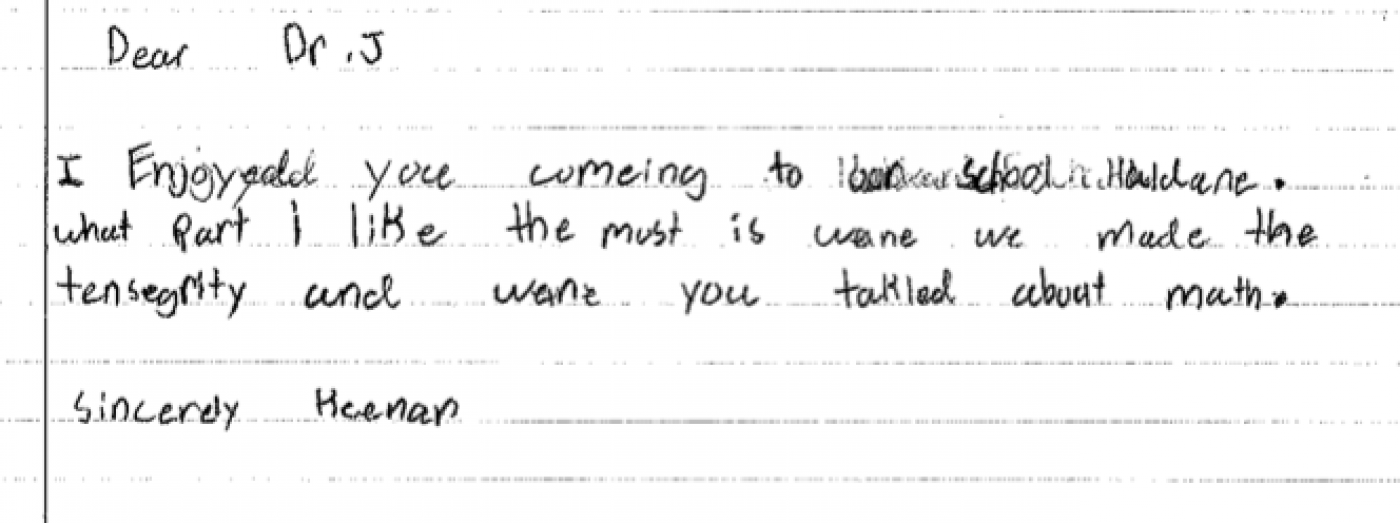 Dear Dr. J
I Enjoyedd you comeing to school Haldane.
what Part i like the most is wane we made the
tensegrity and wane you taklled about math.
Sincerely Keenan